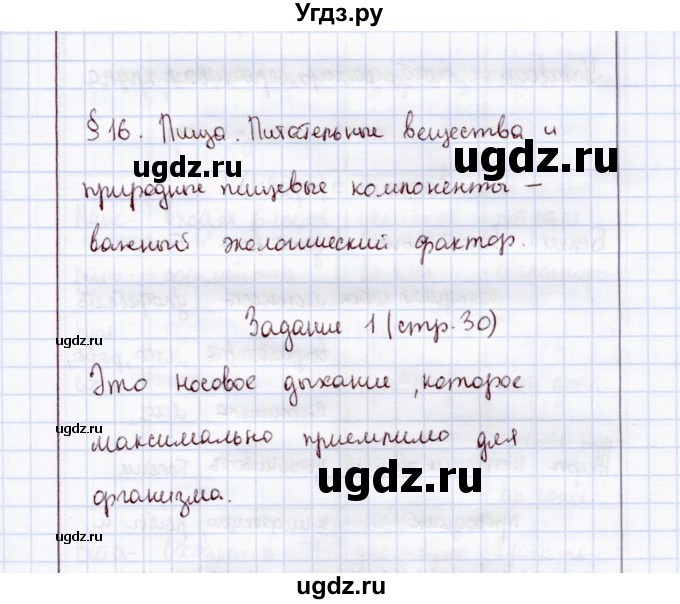 Угдз.ру
§ 16. Пища. Питательные вещества и
ugdz.ru
ugdz.ru
природные пищевые компоненты –
ugdz.ru
важный экологический фактор.
Задание 1 (стр. 30)
ugdz.ru
Это носовое дыхание, которое
ugdz.ru
максимально приемлимо для
ugdz.ru
организма.
ugdz.ru
ugdz.ru